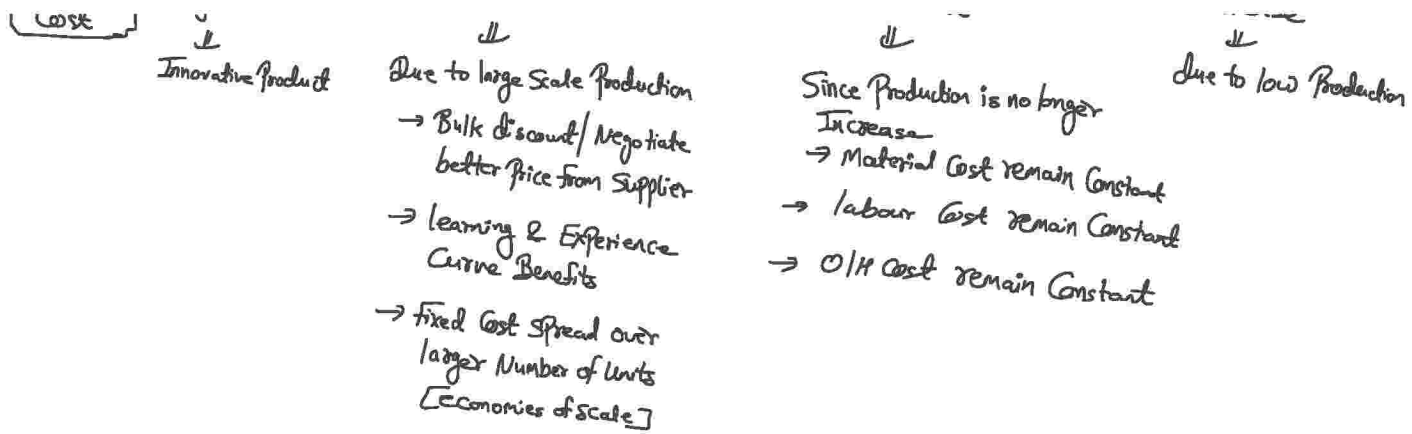 Cost
Innovative Product
Due to large Scale Production
→ Bulk discount/Negotiate
better Price from Supplier
→ learning & Experience
Curve Benefits
→ fixed Cost Spread over
larger Number of Units
[Economies of Scale]
Since Production is no longer
Increase
→ Material Cost remain Constant
→ labour Cost remain Constant
→ O/H Cost remain Constant
due to low Production